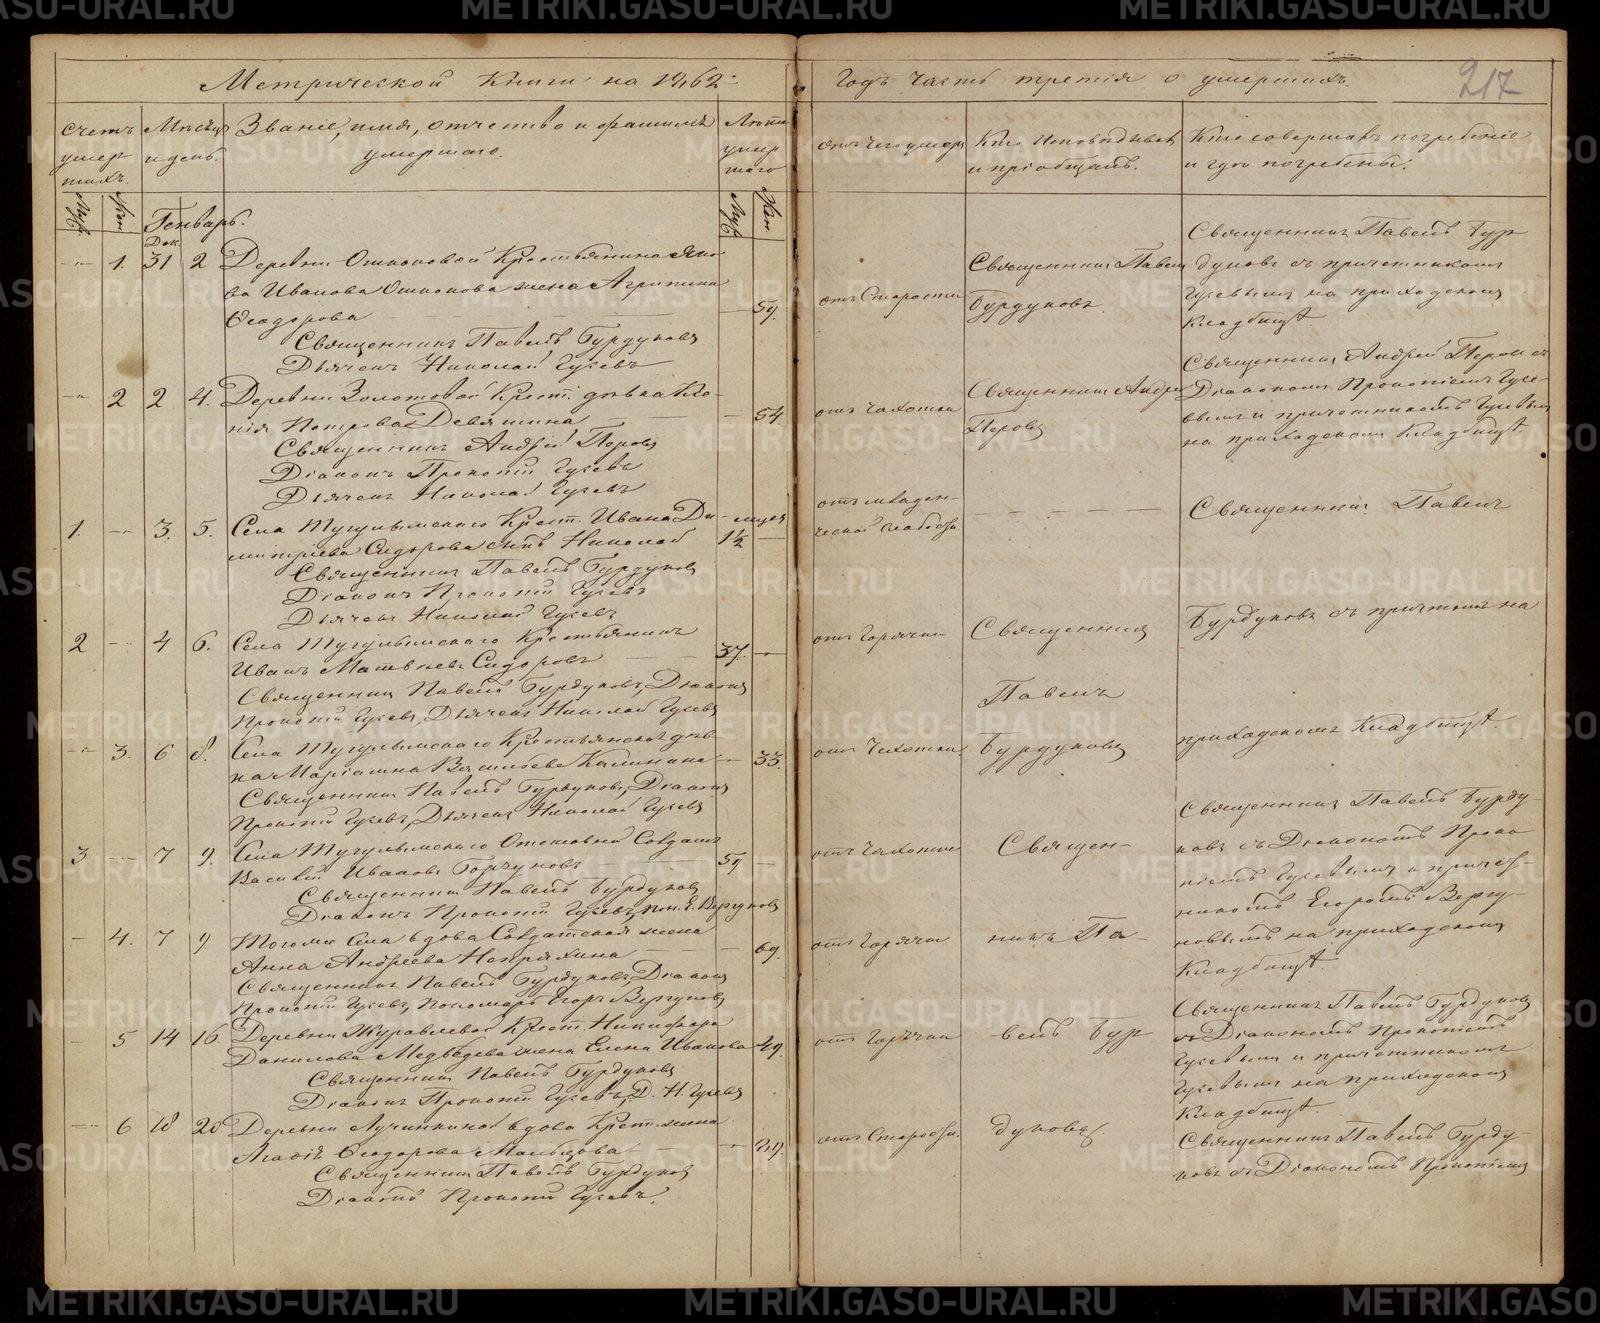 Метрической Книги на 1862й
Годъ Часть третія о умершихъ.
217
Счетъ умер шихъ.
Муж. Жен.
Мѣсяцъ и день.
Званіе, имя, отчество и фамилія умершаго.
Лѣта умер шаго
Муж. Жен.
Отъ чего умеръ
Кто Исповѣдывалъ и пріобщалъ.
Кто совершалъ погребеніе и гдѣ погребены.
Генварь.
Дек.
1. 31 2 Деревни Ошкоковой Крестьянина Яко
ва Иванова Ошкокова жена Агрипина
Ѳеодорова 59.
Священникъ Павелъ Бурдуковъ
Дьячекъ Николай Гусевъ
отъ Старости
Священникъ Павелъ
Бурдуковъ.
Священникъ Павелъ Бур
дуковъ съ причетникомъ
Гусевымъ на приходскомъ
Кладбищѣ
2 2 4. Деревни Золотовой Крест. дѣвка Ксе-
нія Петрова Девяткина 54
Священникъ Андрей Перовъ
Діаконъ Прокопій Гусевъ
Дьячекъ Николай Гусевъ
отъ Чахотки
Священникъ Андрей
Перовъ
Священникъ Андрей Перовъ съ
Діакономъ Прокопіемъ Гусе-
вымъ и причетникомъ Гусевымъ
на приходскомъ Кладбищѣ.
1. 3. 5. Села Тугулымскаго Крест. Ивана Ди-
митріева Сидорова сынъ Николай 1½
Священникъ Павелъ Бурдуковъ
Діаконъ Прокопій Гусевъ
Дьячекъ Николай Гусевъ
отъ младен-
ческой слабости
Священникъ Павелъ
2 4 6. Села Тугулымскаго Крестьянинъ
Иванъ Матвѣевъ Сидоровъ 37.
Священникъ Павелъ Бурдуковъ, Діаконъ
Прокопій Гусевъ, Дьячекъ Николай Гусевъ
отъ Горячки
Священникъ
Павелъ
Бурдуковъ съ причтомъ на
3. 6 8. Села Тугулымскаго Крестьянская дѣв-
ка Маріамна Васильева Калинина 33.
Священникъ Павелъ Бурдуковъ, Діаконъ
Прокопій Гусевъ, Дьячекъ Николай Гусевъ
отъ Чахотки
Бурдуковъ
приходскомъ Кладбищѣ.
3 7 9. Села Тугулымскаго Отставной Солдатъ
Василій Ивановъ Горчуковъ 59
Священникъ Павелъ Бурдуковъ
Діаконъ Прокопій Гусевъ, пон. Е. Вергуновъ
отъ Чахотки
Священ-
Священникъ Павелъ Бурду-
ковъ съ Діакономъ Проко
піемъ Гусевымъ и причет-
никомъ Егоромъ Вергу-
новымъ на приходскомъ
Кладбищѣ.
4. 7 9 Тогоже Села вдова Солдатская жена
Анна Андреева Напряхина 69.
Священникъ Павелъ Бурдуковъ, Діаконъ
Прокопій Гусевъ, Пономарь Егоръ Вергуновъ
отъ Горячки
никъ Па-
5 14 16 Деревни Журавлевой Крест. Никифора
Данилова Медвѣдева жена Елена Иванова 49.
Священникъ Павелъ Бурдуковъ
Діаконъ Прокопій Гусевъ, Д. Н. Гусевъ
отъ Горячки
велъ Бур
Священникъ Павелъ Бурдуковъ
съ Діакономъ Прокопіемъ
Гусевымъ и причетникомъ
Гусевымъ на приходскомъ
Кладбищѣ.
6 18 20 Деревни Лучинкиной вдова Крест. жена
Агафія Ѳеодорова Мальцова
Священникъ Павелъ Бурдуковъ
Діаконъ Прокопій Гусевъ.
отъ Старости.
дуковъ
Священникъ Павелъ Бурду-
ковъ съ Діакономъ Прокопіемъ
METRIKI.GASO-URAL.RU